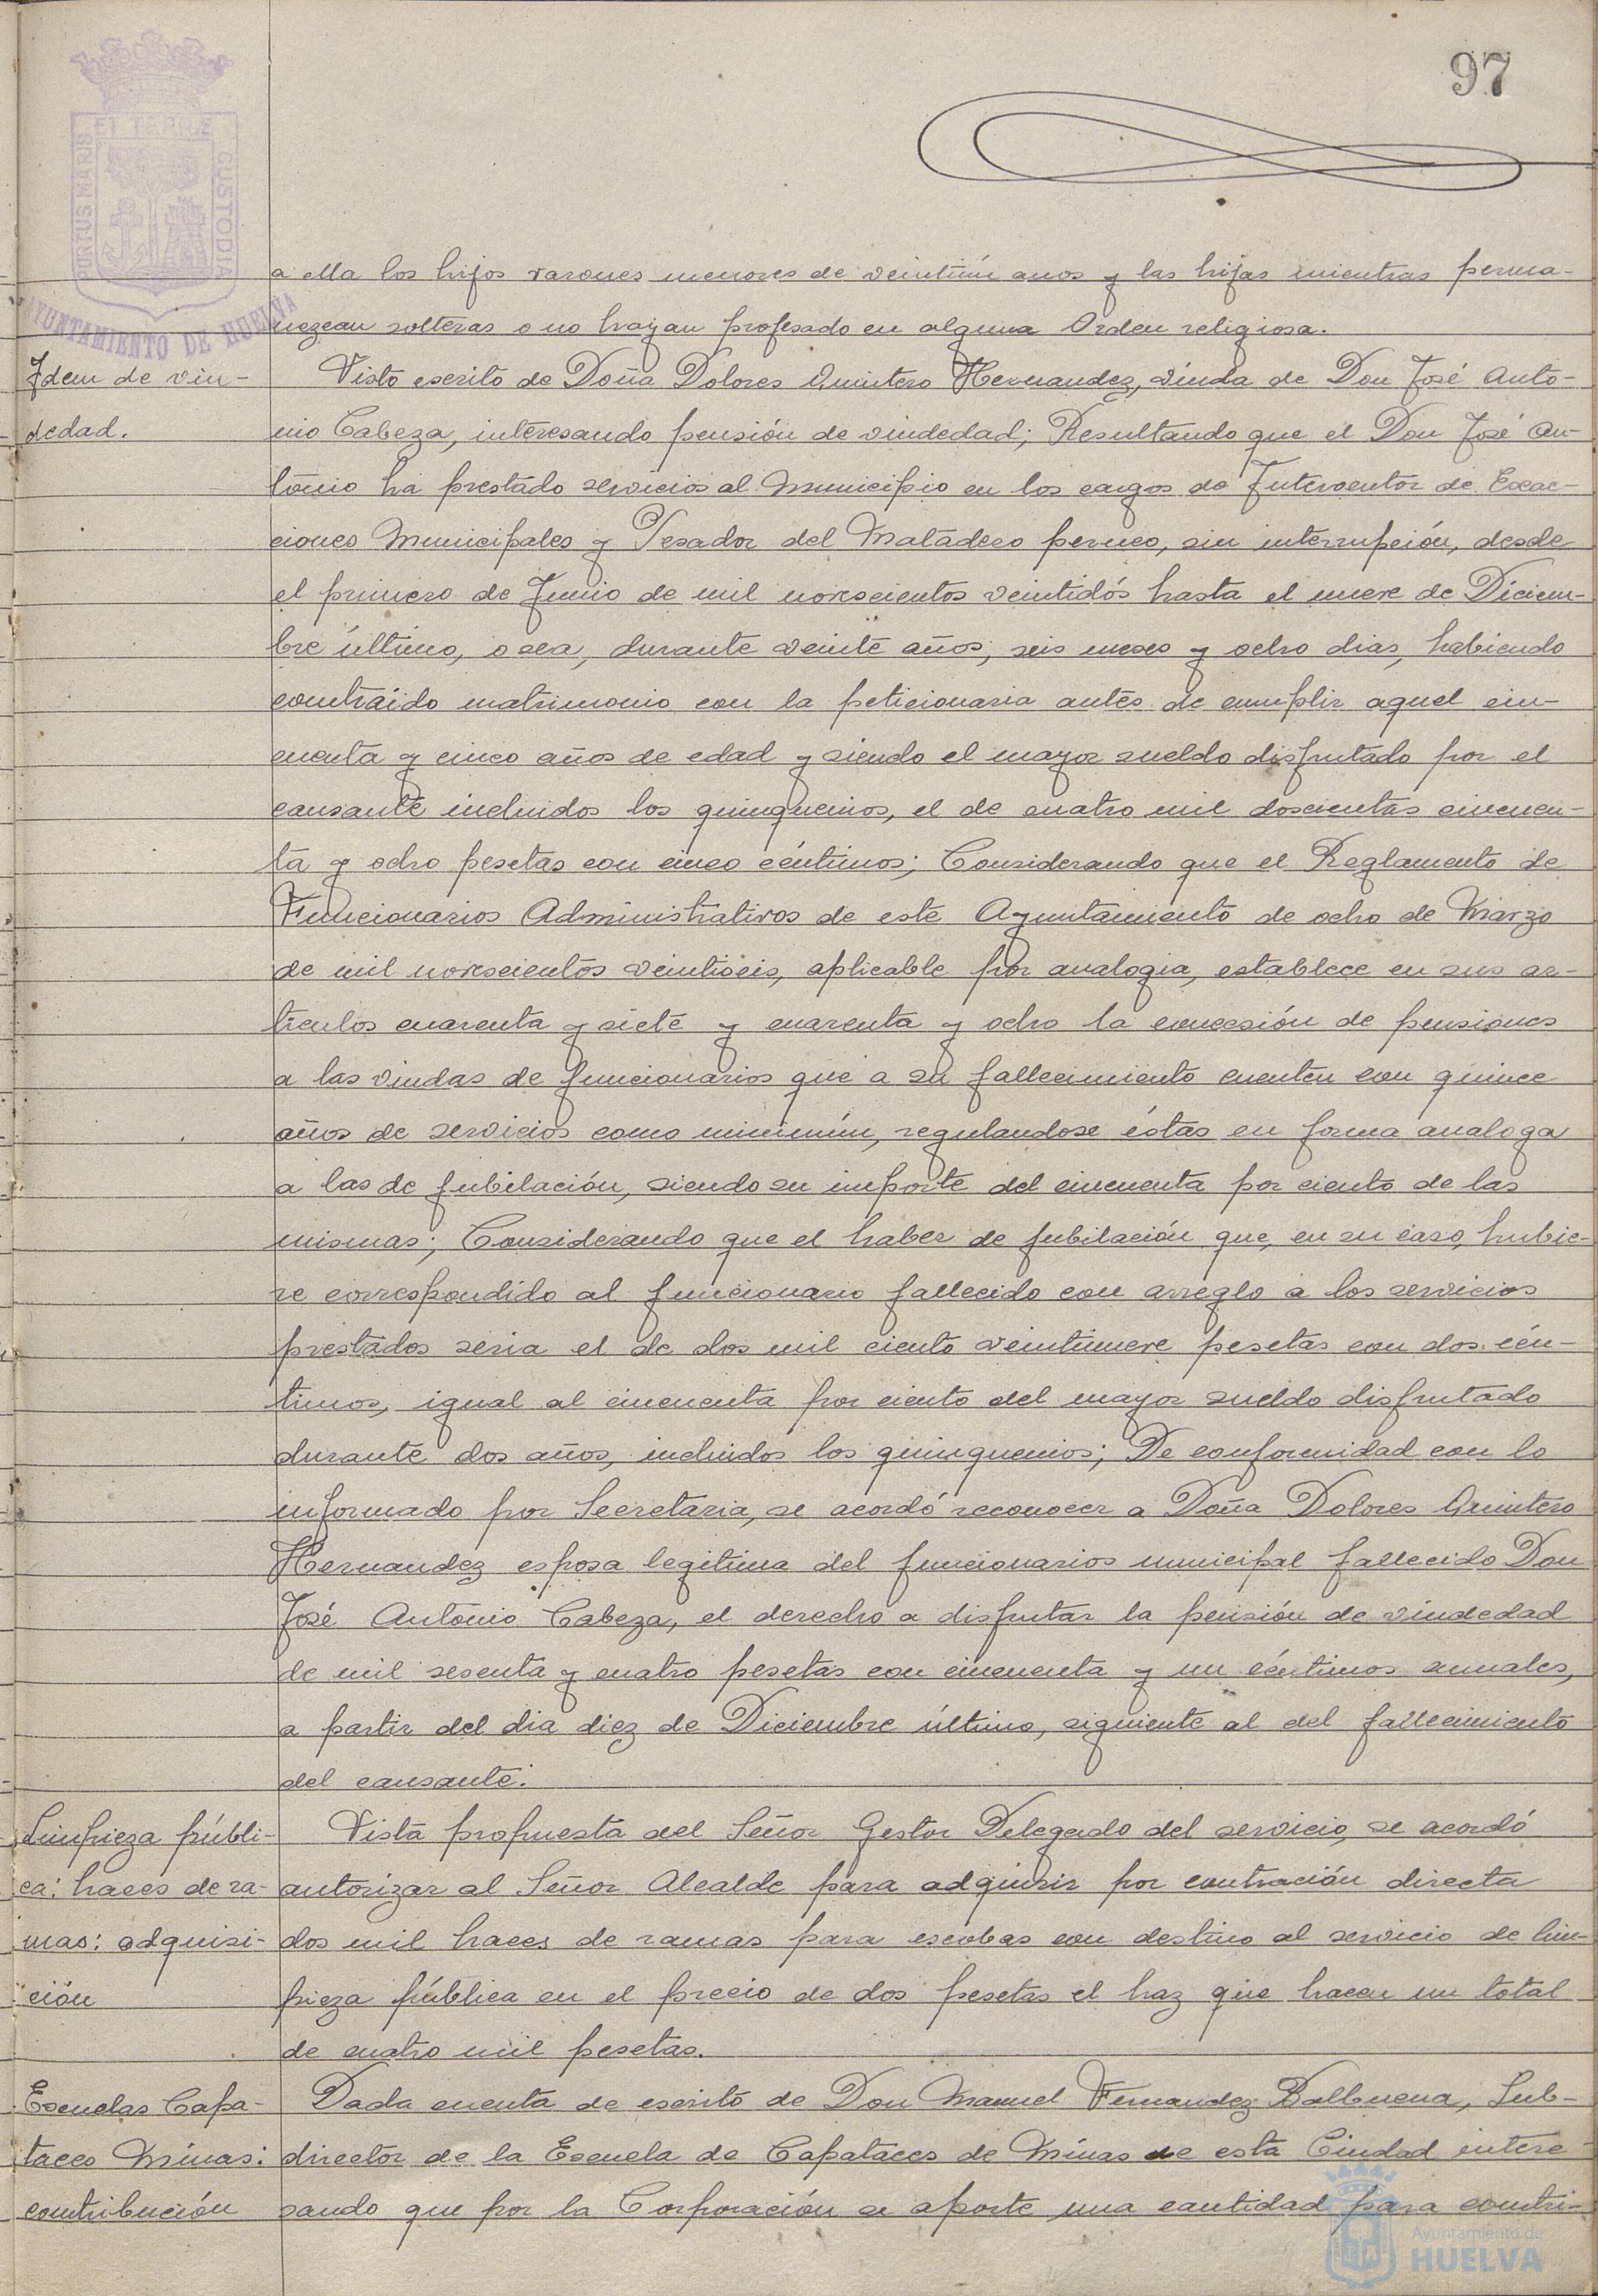 97
PORTUS MARIS ET TERRÆ CUSTODIA
AYUNTAMIENTO DE HUELVA
a ella los hijos varones menores de veintiún anos y las hijas mientras perma-
nezcan solteras o no hayan profesado en alguna Orden religiosa.
Idem de viu-
dedad.
Visto escrito de Doña Dolores Quintero Hernandez, viuda de Don José Anto-
nio Cabeza, interesando pensión de viudedad; Resultando que el Don José An-
tonio ha prestado servicios al Municipio en los cargos de Interventor de Exac-
ciones Municipales y Pesador del Matadero perneo, sin interrupción, desde
el primero de Junio de mil novecientos veintidós hasta el nueve de Diciem-
bre último, o sea, durante veinte años, seis meses y ocho dias, habiendo
contraído matrimonio con la peticionaria antes de cumplir aquel cin-
cuenta y cinco años de edad y siendo el mayor sueldo disfrutado por el
causante incluidos los quinquenios, el de cuatro mil doscientas cincuen-
ta y ocho pesetas con cinco céntimos; Considerando que el Reglamento de
Funcionarios Administrativos de este Ayuntamiento de ocho de Marzo
de mil novecientos veintiseis, aplicable por analogia, establece en sus ar-
tículos cuarenta y siete y cuarenta y ocho la concesión de pensiones
a las viudas de funcionarios que a su fallecimiento cuenten con quince
años de servicios como minimún, regulandose éstas en forma analoga
a las de jubilación, siendo su importe del cincuenta por ciento de las
mismas; Considerando que el haber de jubilación que, en su caso, hubie-
re correspondido al funcionario fallecido con arreglo a los servicios
prestados seria el de dos mil ciento veintinueve pesetas con dos cén-
timos, igual al cincuenta por ciento del mayor sueldo disfrutado
durante dos años, incluidos los quinquenios; De conformidad con lo
informado por Secretaria, se acordó reconocer a Doña Dolores Quintero
Hernandez esposa legitima del funcionarios municipal fallecido Don
José Antonio Cabeza, el derecho a disfrutar la pensión de viudedad
de mil sesenta y cuatro pesetas con cincuenta y un céntimos anuales,
a partir del dia diez de Diciembre último, siguiente al del fallecimiento
del causante.
Limpieza públi-
ca: haces de ra-
mas: adquisi-
ción
Vista propuesta del Señor Gestor Delegado del servicio, se acordó
autorizar al Señor Alcalde para adquirir por contración directa
dos mil haces de ramas para escobas con destino al servicio de lim-
pieza pública en el precio de dos pesetas el haz que hacen un total
de cuatro mil pesetas.
Escuelas Capa-
taces Minas:
contribución
Dada cuenta de escrito de Don Manuel Fernandez Balbuena, Sub-
director de la Escuela de Capataces de Minas de esta Ciudad intere-
sando que por la Corporación se aporte una cantidad para contri-
Ayuntamiento de
HUELVA